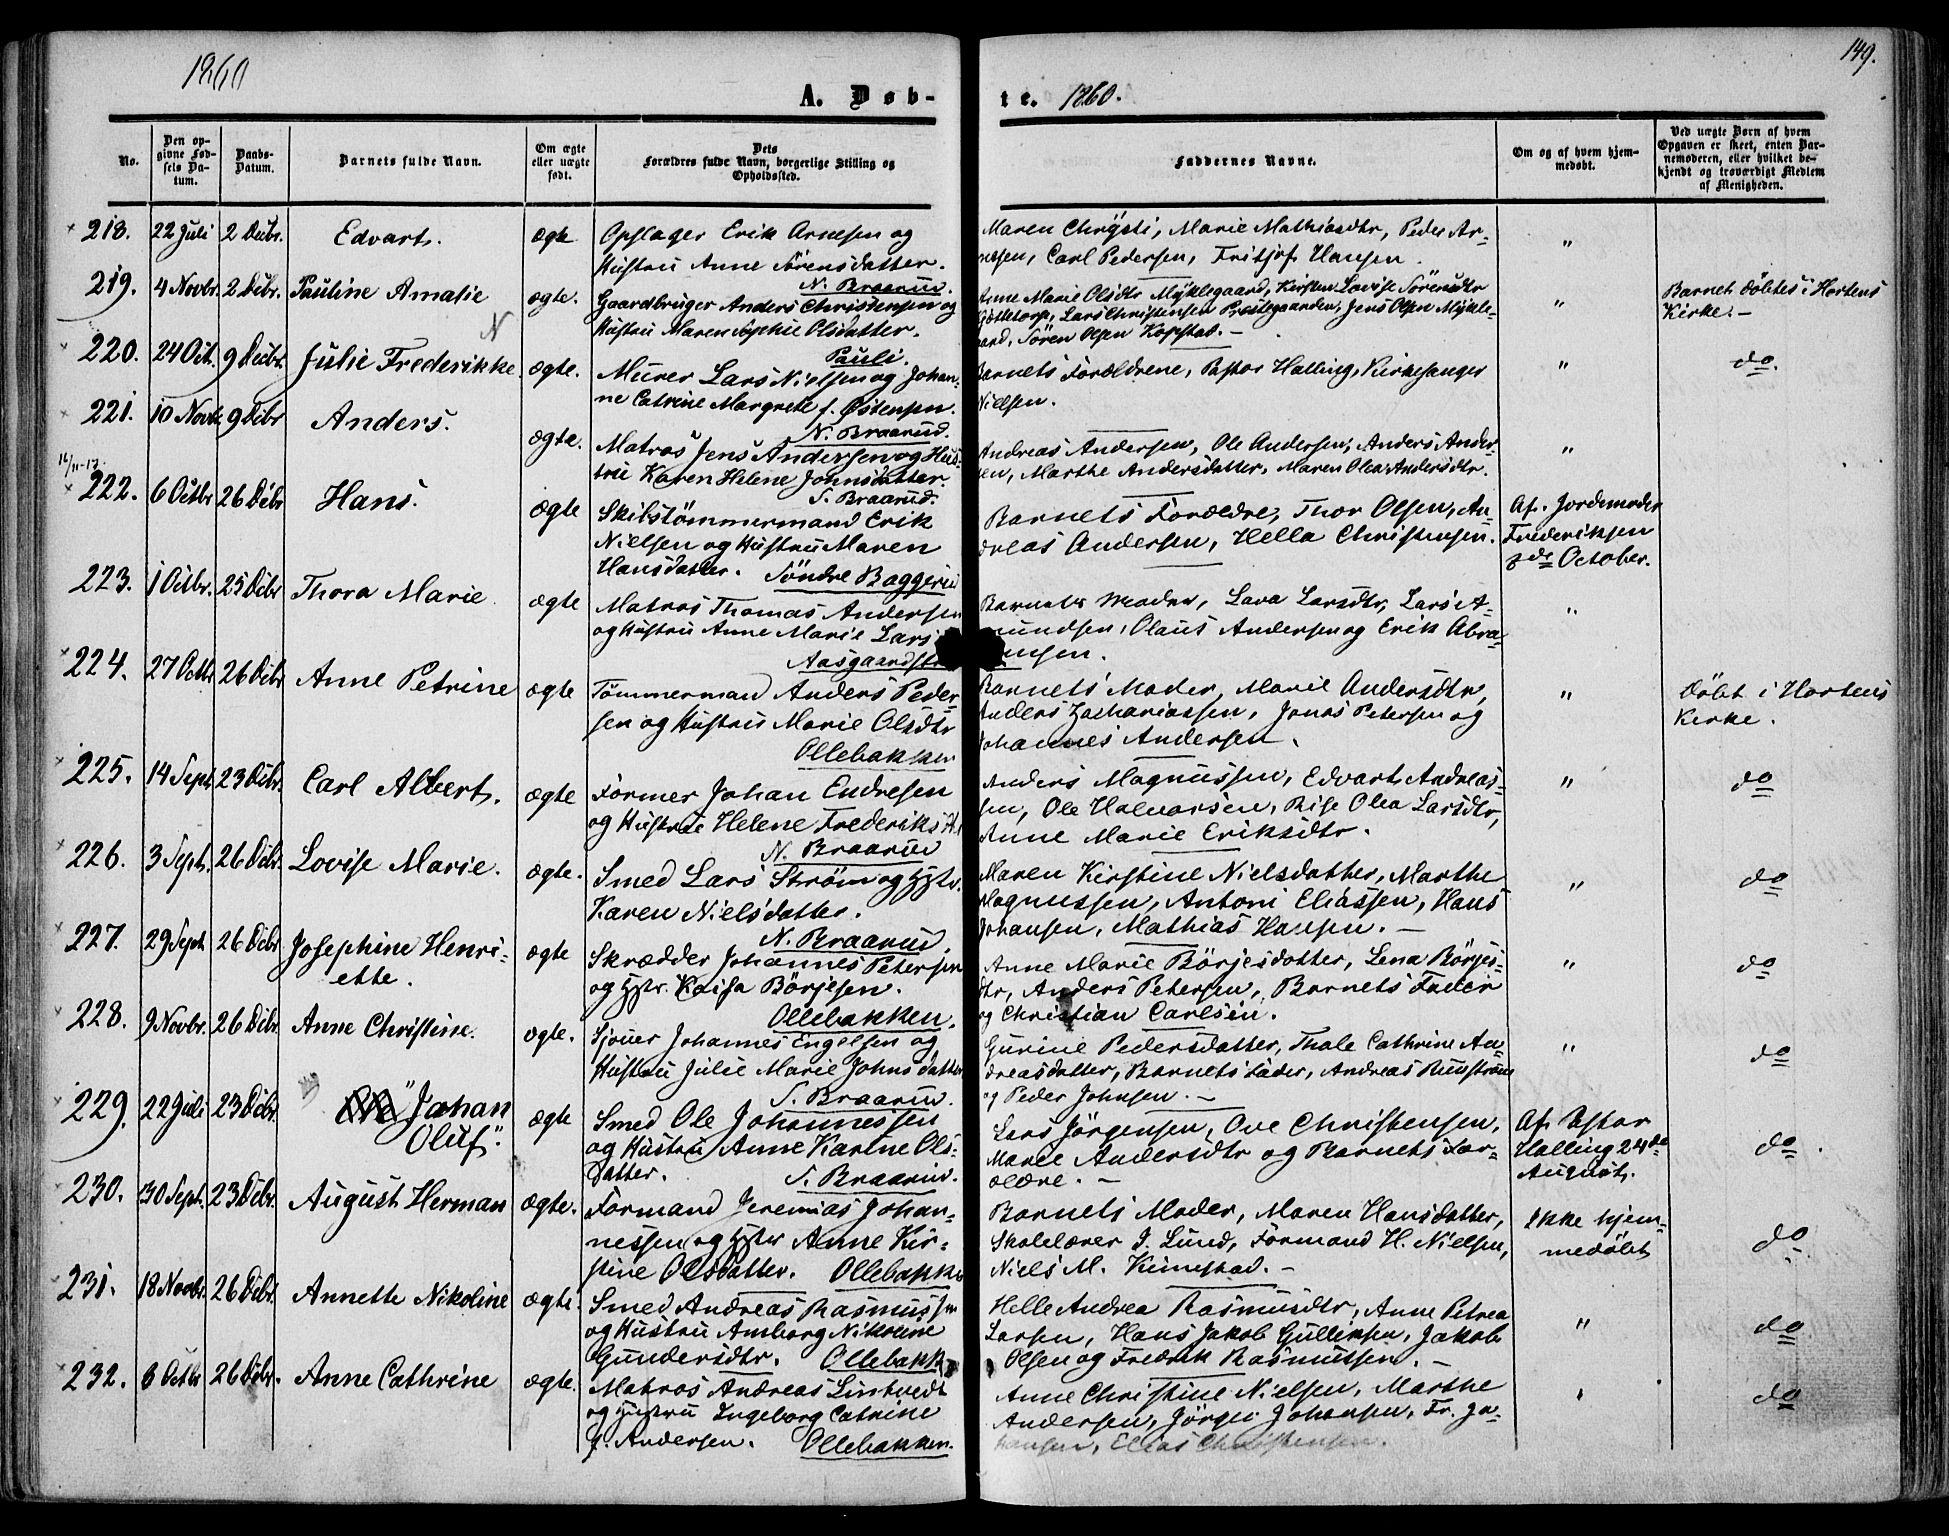 1860
149.
A. Døb-
te. 1860.
No.
Den op-
givne Fød-
sels Da-
tum.
Daabs-
Datum.
Barnets fulde Navn.
Om ægte
eller uægte
født.
Dets
Forældres fulde Navn, borgerlige Stilling og
Opholdssted.
Faddernes Navne.
Om og af hvem hjem-
medøbt.
Ved uægte Børn af hvem
Opgaven er skeet, enten Bar-
nemoderen, eller hvilket be-
kjendt og troværdigt Medlem
af Menigheden.
218. 22 Juli 2 Decbr. Edvart. ægte
Opsager Erik Arnesen og
Hustru Anne Sørensdatter.
N. Braarud.
Maren Chrysti, Marie Mathiasdtr, Peder Ar-
nesen, Carl Pedersen, Fritjof Hansen.
"
219. 4 Novbr. 2 Dcbr. Pauline Amalie ægte.
Gaardbruger Anders Christensen og
Hustru Maren Sophie Olsdatter.
Pauli.
Anne Marie Olsdtr Myklegaard, Kirsten Lovise Sørensdtr
Lars Christensen Præstegaarden, Jens Olsen Mykle-
gaard, Søren Olsen Kopstad. –
"
Barnet døbtes i Hortens
Kirke. –
N
220. 24 Oct. 9 Decbr. Julie Frederikke. ægte.
Murer Lars Nielsen og Johan-
ne Catrine Margrete f. Østensen.
N. Braarud.
Barnets Forældrene, Pastor Halling, Kirkesanger
Nielsen.
"
do.
221. 10 Novbr. 9 Dcbr Anders. ægte.
Matros Jens Andersen og Hus-
tru Karen Helene Johnsdatter.
S. Braarud.
Andreas Andersen, Ole Andersen, Anders Ander-
sen, Marthe Andersdatter, Maren Olea Andersdtr.
"
222. 6 Octbr 26 Dcbr Hans. ægte
Skibstømmermand Erik
Nielsen og Hustru Maren
Hansdatter. Søndre Baggerud
Barnets Forældre, Thor Olsen, An-
dreas Andersen, Hella Christensen.
Af. Jordemoder
Frederiksen
October.
223. 1 Octbr. 25 Dcbr Thora Marie ægte
Matros Thomas Andersen
og Hustru Anne Marie Lars
Aasgaardstr
Barnets Moder, Lava Larsdtr, Lars A-
mundsen, Olaus Andersen og Erik Abra-
hamsen.
"
224. 27 Octbr 26 Dcbr Anne Petrine ægte
Tømmermand Anders Peder-
sen og Hustru Marie Olsdtr
Ollebakken
Barnets Moder, Marie Andersdtr,
Anders Zachariassen, Jonas Petersen og
Johannes Andersen.
"
døbt i Hortens
Kirke.
225. 14 Sept. 23 Dcbr. Carl Albert. ægte
Former Johan Endresen
og Hustrue Helene Frederiks
N. Braarud
Anders Magnussen, Edvart Andreas-
sen, Ole Halvorsen, Rise Olea Larsdtr,
Anne Marie Eriksdtr.
"
do
226. 3 Septb. 26 Dcbr. Lovise Marie. ægte.
Smed Lars Strøm og Hstr.
Karen Nielsdatter.
N. Braarud
Maren Kirstine Nielsdatter, Marthe
Magnussen, Antoni Eliassen, Hans
Johansen, Mathias Hansen. –
"
do
227. 29 Sept. 26 Dcbr Josephine Henri-
ette. ægte
Skrædder Johannes Petersen
og Hstr. Kaisa Börjesen.
Ollebakken.
Anne Marie Börjesdatter, Lena Börjes-
dtr, Anders Petersen, Barnets Fader
og Christian Carlsen.
"
do
228. 9 Novbr. 26 Dcbr. Anne Christine. ægte.
Sjouer Johannes Engelsen og
Hustru Julie Marie Johnsdatter
S. Braarud.
Gurine Pedersdatter, Thale Cathrine An-
dreasdatter, Barnets Fader, Andreas Runström
og Peder Johnsen. –
"
do
229. 22 Juli 23 Dcbr. "Johan
Oluf". ægte
Smed Ole Johannessen
og Hustru Anne Karine Ols-
datter. S. Braarud.
Lars Jörgensen, Ove Christensen,
Maree Andersdtr og Barnets For-
ældre. –
Af. Pastor
Halling 24de
August.
do.
230. 30 Sept. 23 Dcbr. August Herman ægte.
Formand Jeremias Johan-
nessen og Hstr Anne Kir-
stine Olsdatter. Ollebakke
Barnets Moder, Maren Hansdatter,
Skolelærer J. Lund, Formand H. Nielsen,
Niels M. Kimestad. –
Ikke hjem-
medøbt
do.
231. 18 Novbr. 26 Dcbr. Annette Nikoline ægte.
Smed Andreas Rasmussen
og Hustru Amborg Nikoline
Gundersdtr. Ollebakk
Helle Andrea Rasmusdtr, Anne Petrea
Larsen, Hans Jakob Gulliksen, Jakob
Olsen og Fredrik Rasmussen. –
"
do
232. 6 Octbr 26 Dcbr. Anne Cathrine ægte.
Matros Andreas Lintvedt
og Hustru Ingeborg Catrine
f. Andersen. Ollebakken.
Anne Christine Nielsen, Marthe
Andersen, Jörgen Johansen, Fr. Jo-
hansen, Elias Christensen.
do